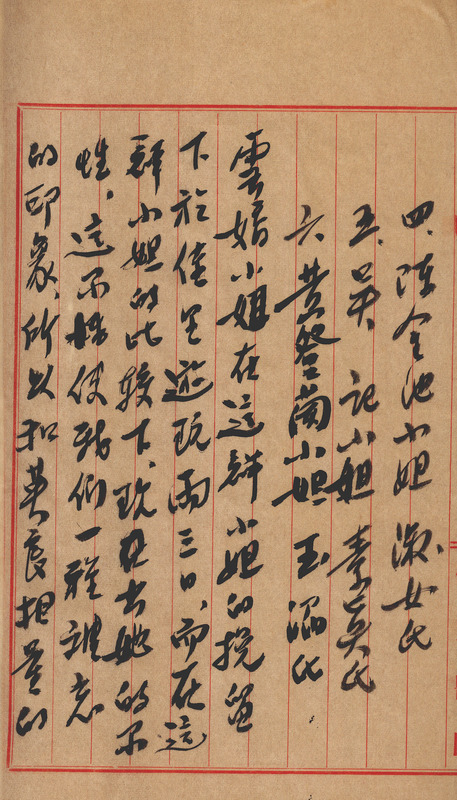 四、陳金池小姐 淑女氏
五、吳 記小姐 李吳氏
六、黃碧蘭小姐 玉 氏
雲嬌小姐在這群小姐的挽留
下於佳里遊玩兩三日、而在這
群小姐的比較下、現出她的不
性、這不過使我們一種難忘
的印象、所以和黃良担著的